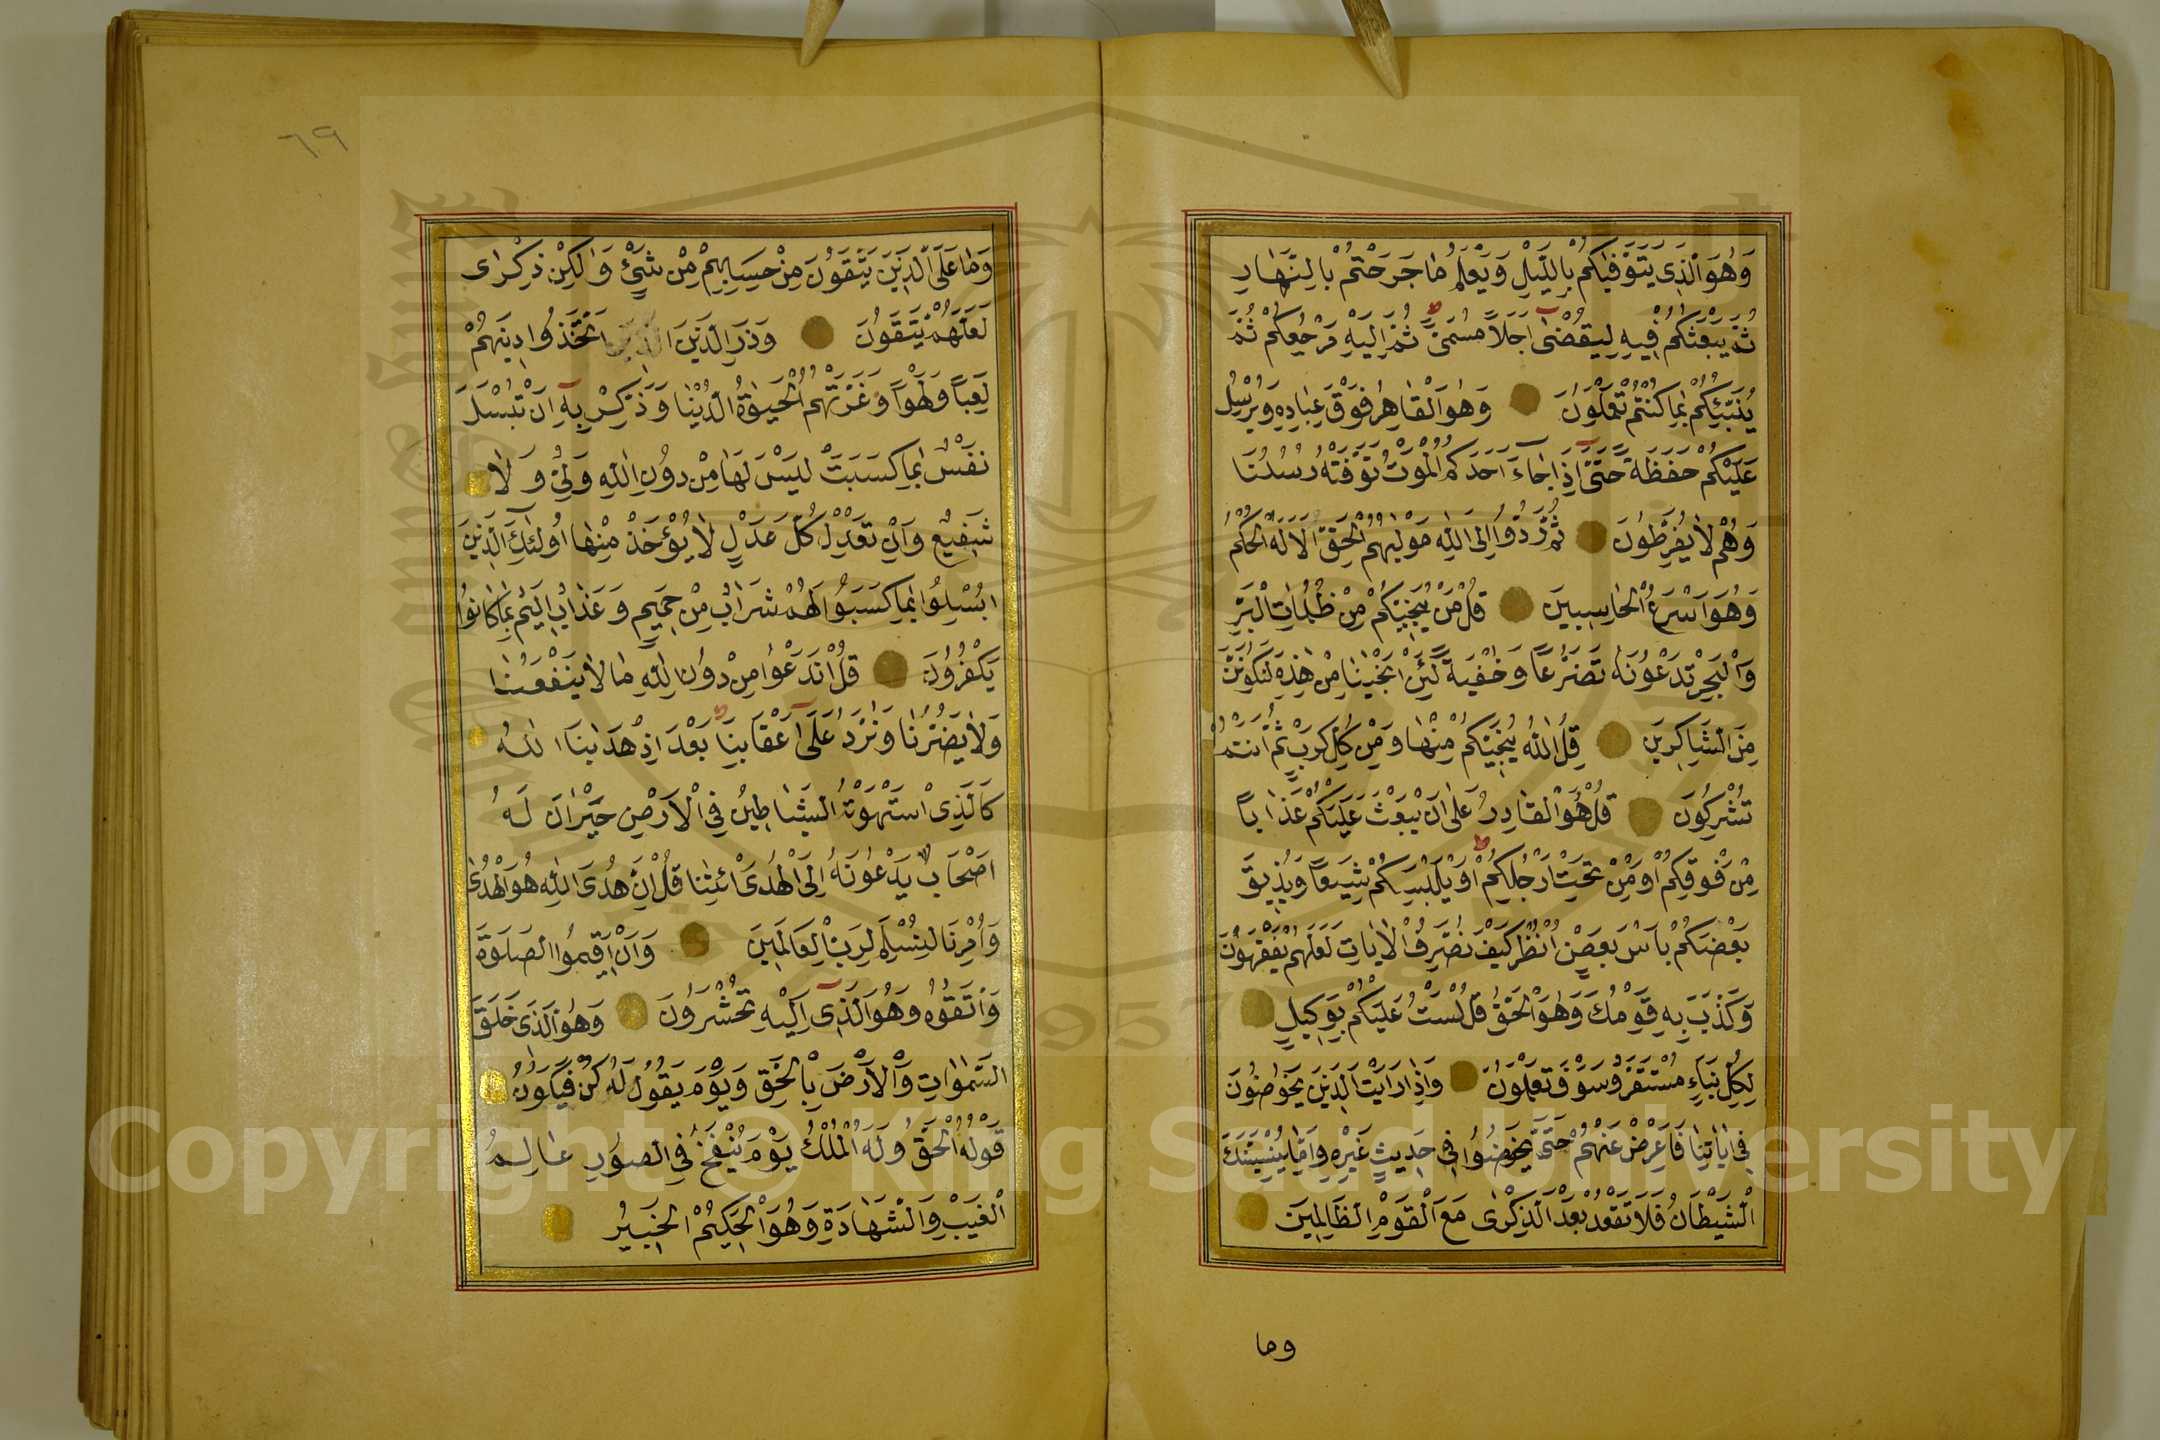 وَهُوَ الَّذِى يَتَوَفّٰيكُمْ بِالَّيْلِ وَيَعْلَمُ مَا جَرَحْتُمْ بِالنَّهَارِ
ثُمَّ يَبْعَثُكُمْ فِيهِ لِيُقْضٰى اَجَلاً مُسَمًّى ثُمَّ اِلَيْهِ مَرْجِعُكُمْ ثُمَّ
يُنَبِّئُكُمْ بِمَا كُنْتُمْ تَعْمَلُونَ وَهُوَ الْقَاهِرُ فَوْقَ عِبَادِهِ وَيُرْسِلُ
عَلَيْكُمْ حَفَظَةً حَتَّى اِذَا جَاءَ اَحَدَكُمُ الْمَوْتُ تَوَفَّتْهُ رُسُلُنَا
وَهُمْ لَا يُفَرِّطُونَ ثُمَّ رُدُّوا اِلَى اللّٰهِ مَوْلٰيهُمُ الْحَقِّ اَلَا لَهُ الْحُكْمُ
وَهُوَ اَسْرَعُ الْحَاسِبِينَ قُلْ مَنْ يُنَجِّيكُمْ مِنْ ظُلُمَاتِ الْبَرِّ
وَالْبَحْرِ تَدْعُونَهُ تَضَرُّعاً وَخُفْيَةً لَئِنْ اَنْجَيْتَنَا مِنْ هٰذِهِ لَنَكُونَنَّ
مِنَ الشَّاكِرِينَ قُلِ اللّٰهُ يُنَجِّيكُمْ مِنْهَا وَمِنْ كُلِّ كَرْبٍ ثُمَّ اَنْتُمْ
تُشْرِكُونَ قُلْ هُوَ الْقَادِرُ عَلٰى اَنْ يَبْعَثَ عَلَيْكُمْ عَذَاباً
مِنْ فَوْقِكُمْ اَوْ مِنْ تَحْتِ اَرْجُلِكُمْ اَوْ يَلْبِسَكُمْ شِيَعاً وَيُذِيقَ
بَعْضَكُمْ بَاْسَ بَعْضٍ اُنْظُرْ كَيْفَ نُصَرِّفُ الْاٰيَاتِ لَعَلَّهُمْ يَفْقَهُونَ
وَكَذَّبَ بِهِ قَوْمُكَ وَهُوَ الْحَقُّ قُلْ لَسْتُ عَلَيْكُمْ بِوَكِيلٍ
لِكُلِّ نَبَاءٍ مُسْتَقَرٌّ وَسَوْفَ تَعْلَمُونَ وَاِذَا رَاَيْتَ الَّذِينَ يَخُوضُونَ
فِى اٰيَاتِنَا فَاَعْرِضْ عَنْهُمْ حَتَّى يَخُوضُوا فِى حَدِيثٍ غَيْرِهِ وَاِمَّا يُنْسِيَنَّكَ
الشَّيْطَانُ فَلَا تَقْعُدْ بَعْدَ الذِّكْرٰى مَعَ الْقَوْمِ الظَّالِمِينَ
وما
٦٩
وَمَا عَلَى الَّذِينَ يَتَّقُونَ مِنْ حِسَابِهِمْ مِنْ شَىْءٍ وَلٰكِنْ ذِكْرٰى
لَعَلَّهُمْ يَتَّقُونَ وَذَرِ الَّذِينَ اتَّخَذُوا دِينَهُمْ
لَعِباً وَلَهْواً وَغَرَّتْهُمُ الْحَيٰوةُ الدُّنْيَا وَذَكِّرْ بِهِ اَنْ تُبْسَلَ
نَفْسٌ بِمَا كَسَبَتْ لَيْسَ لَهَا مِنْ دُونِ اللّٰهِ وَلِىٌّ وَلَا
شَفِيعٌ وَاِنْ تَعْدِلْ كُلَّ عَدْلٍ لَا يُؤْخَذْ مِنْهَا اُولٰئِكَ الَّذِينَ
اُبْسِلُوا بِمَا كَسَبُوا لَهُمْ شَرَابٌ مِنْ حَمِيمٍ وَعَذَابٌ اَلِيمٌ بِمَا كَانُوا
يَكْفُرُونَ قُلْ اَنَدْعُوا مِنْ دُونِ اللّٰهِ مَا لَا يَنْفَعُنَا
وَلَا يَضُرُّنَا وَنُرَدُّ عَلٰى اَعْقَابِنَا بَعْدَ اِذْ هَدٰينَا اللّٰهُ
كَالَّذِى اسْتَهْوَتْهُ الشَّيَاطِينُ فِى الْاَرْضِ حَيْرَانَ لَهُ
اَصْحَابٌ يَدْعُونَهُ اِلَى الْهُدَى ائْتِنَا قُلْ اِنَّ هُدَى اللّٰهِ هُوَ الْهُدٰى
وَاُمِرْنَا لِنُسْلِمَ لِرَبِّ الْعَالَمِينَ وَاَنْ اَقِيمُوا الصَّلٰوةَ
وَاتَّقُوهُ وَهُوَ الَّذِى اِلَيْهِ تُحْشَرُونَ وَهُوَ الَّذِى خَلَقَ
السَّمٰوَاتِ وَالْاَرْضَ بِالْحَقِّ وَيَوْمَ يَقُولُ لَهُ كُنْ فَيَكُونُ
قَوْلُهُ الْحَقُّ وَلَهُ الْمُلْكُ يَوْمَ يُنْفَخُ فِى الصُّورِ عَالِمُ
الْغَيْبِ وَالشَّهَادَةِ وَهُوَ الْحَكِيمُ الْخَبِيرُ
Copyright © King Saud University
1957